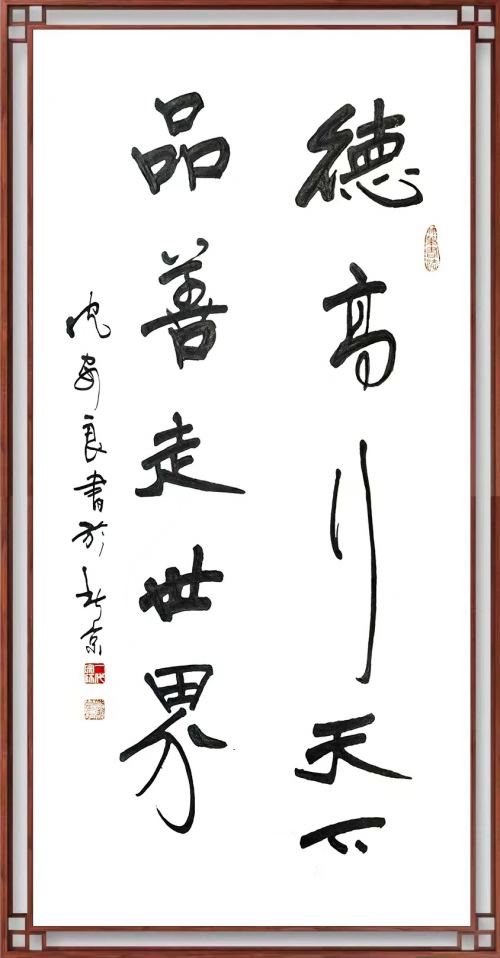 德高行天下
品善走世界
沈安良書於京